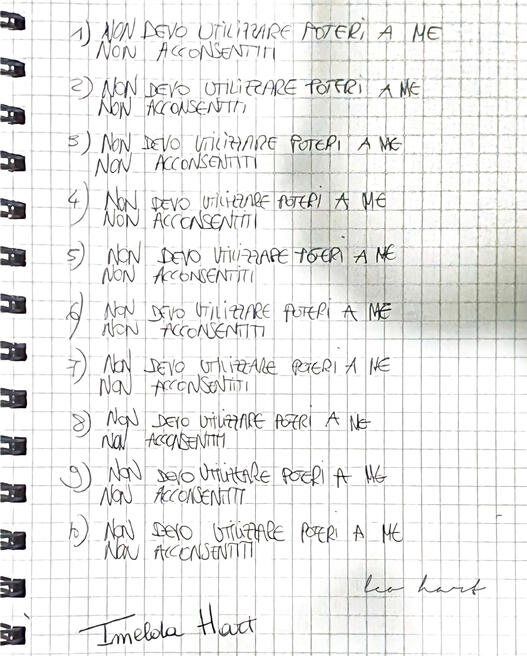 1) NON DEVO UTILIZZARE POTERI A ME
NON ACCONSENTITI
2) NON DEVO UTILIZZARE POTERI A ME
NON ACCONSENTITI
3) NON DEVO UTILIZZARE POTERI A ME
NON ACCONSENTITI
4) NON DEVO UTILIZZARE POTERI A ME
NON ACCONSENTITI
5) NON DEVO UTILIZZARE POTERI A ME
NON ACCONSENTITI
6) NON DEVO UTILIZZARE POTERI A ME
NON ACCONSENTITI
7) NON DEVO UTILIZZARE POTERI A ME
NON ACCONSENTITI
8) NON DEVO UTILIZZARE POTERI A ME
NON ACCONSENTITI
9) NON DEVO UTILIZZARE POTERI A ME
NON ACCONSENTITI
10) NON DEVO UTILIZZARE POTERI A ME
NON ACCONSENTITI
leo hart
Imelda Hart